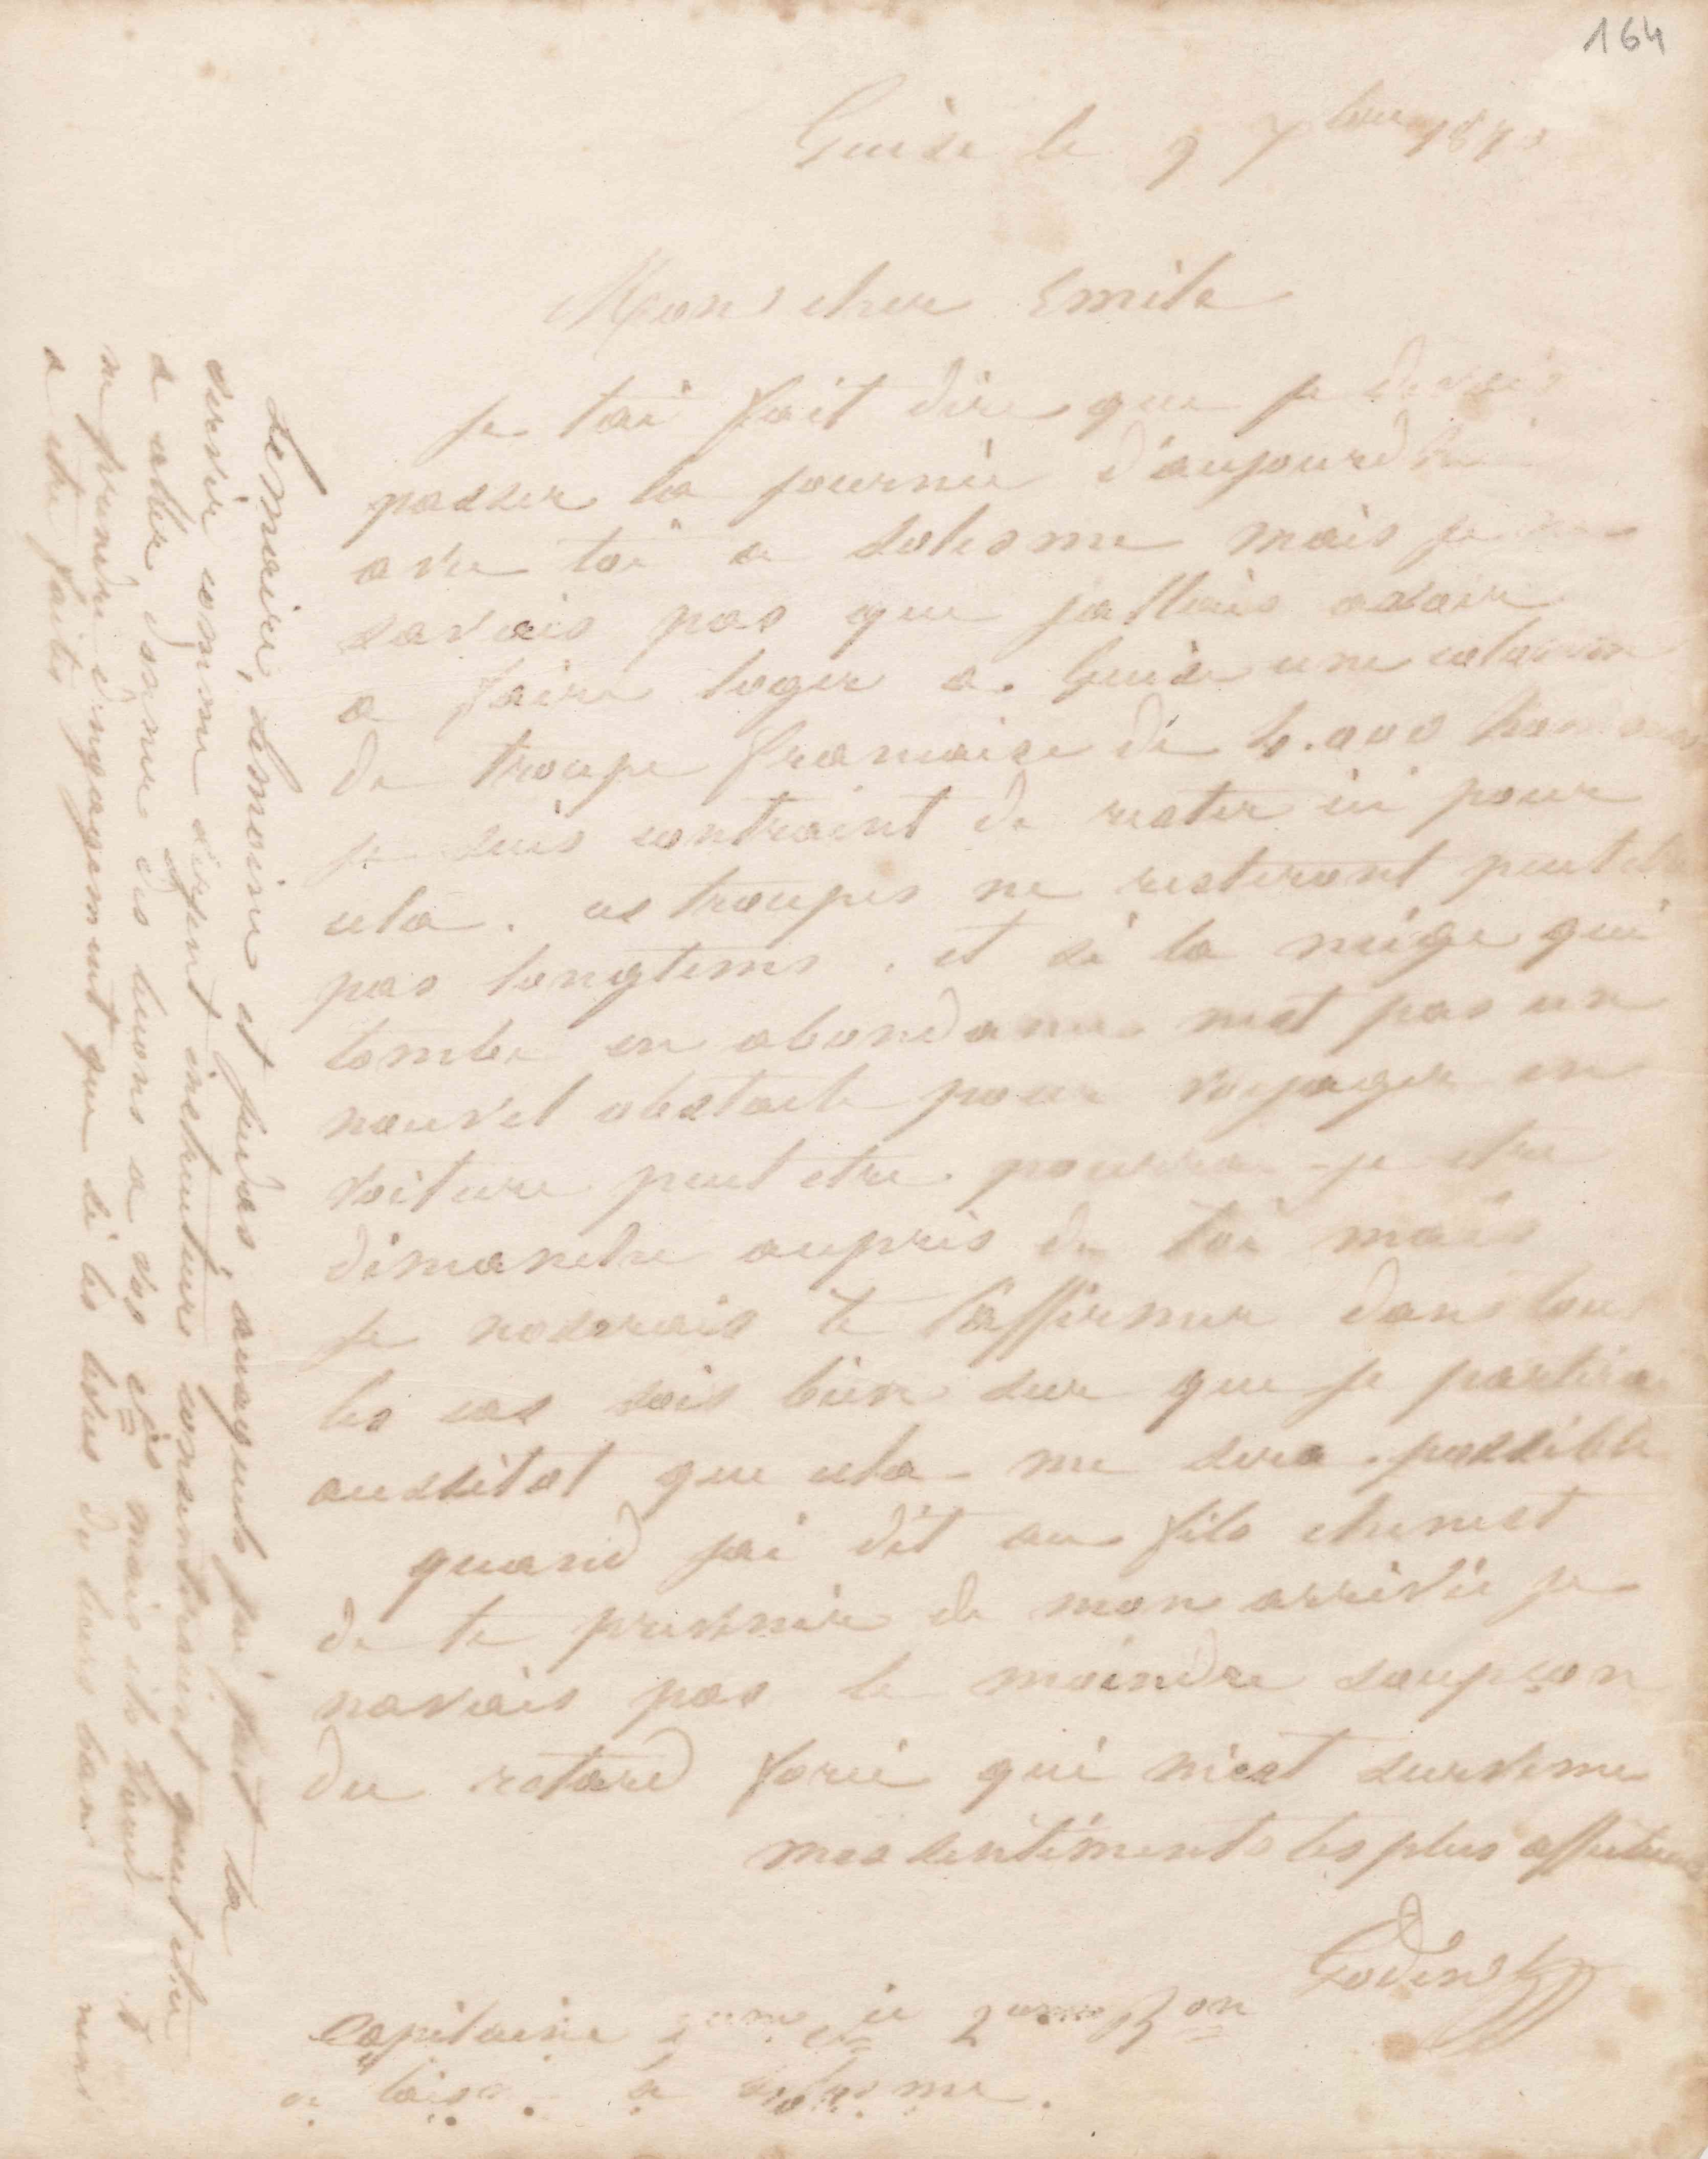 164
Guise le 9 Xbre 1870
Mon cher Emile
je tai fait dire que je devais
passer la journée d'aujourdhui
avec toi a solesme mais je ne
savais pas que jallais avoir
a faire loger a Guise une colonne
de troupe francaise de 4.000 hommes
je suis contraint de rester ici pour
cela. ces troupes ne resteront peut etre
pas longtems. et si la neige qui
tombe en abondance nest pas un
nouvel obstacle pour voyager en
voiture peut etre pourrai-je etre
dimanche aupres de toi mais
je noserais te l'affirmer dans tous
les cas sois bien sur que je partirai
aussitot que cela me sera possible
quand jai dit au fils
de te prevenir de mon arrivée je
navais pas le moindre soupçon
du retard forcé qui m'est survenu
mes sentiments les plus affectueux
Godin
capitaine 2eme cie 2eme Bon
a solesme.
Lemaire, Lemoine et auxquels jai fait la
servir comme sergent instructeurs consentiraient peut etre
a aller donner des lecons a vos cies mais ils ne
prendre d'engagement que si les
a etre faites